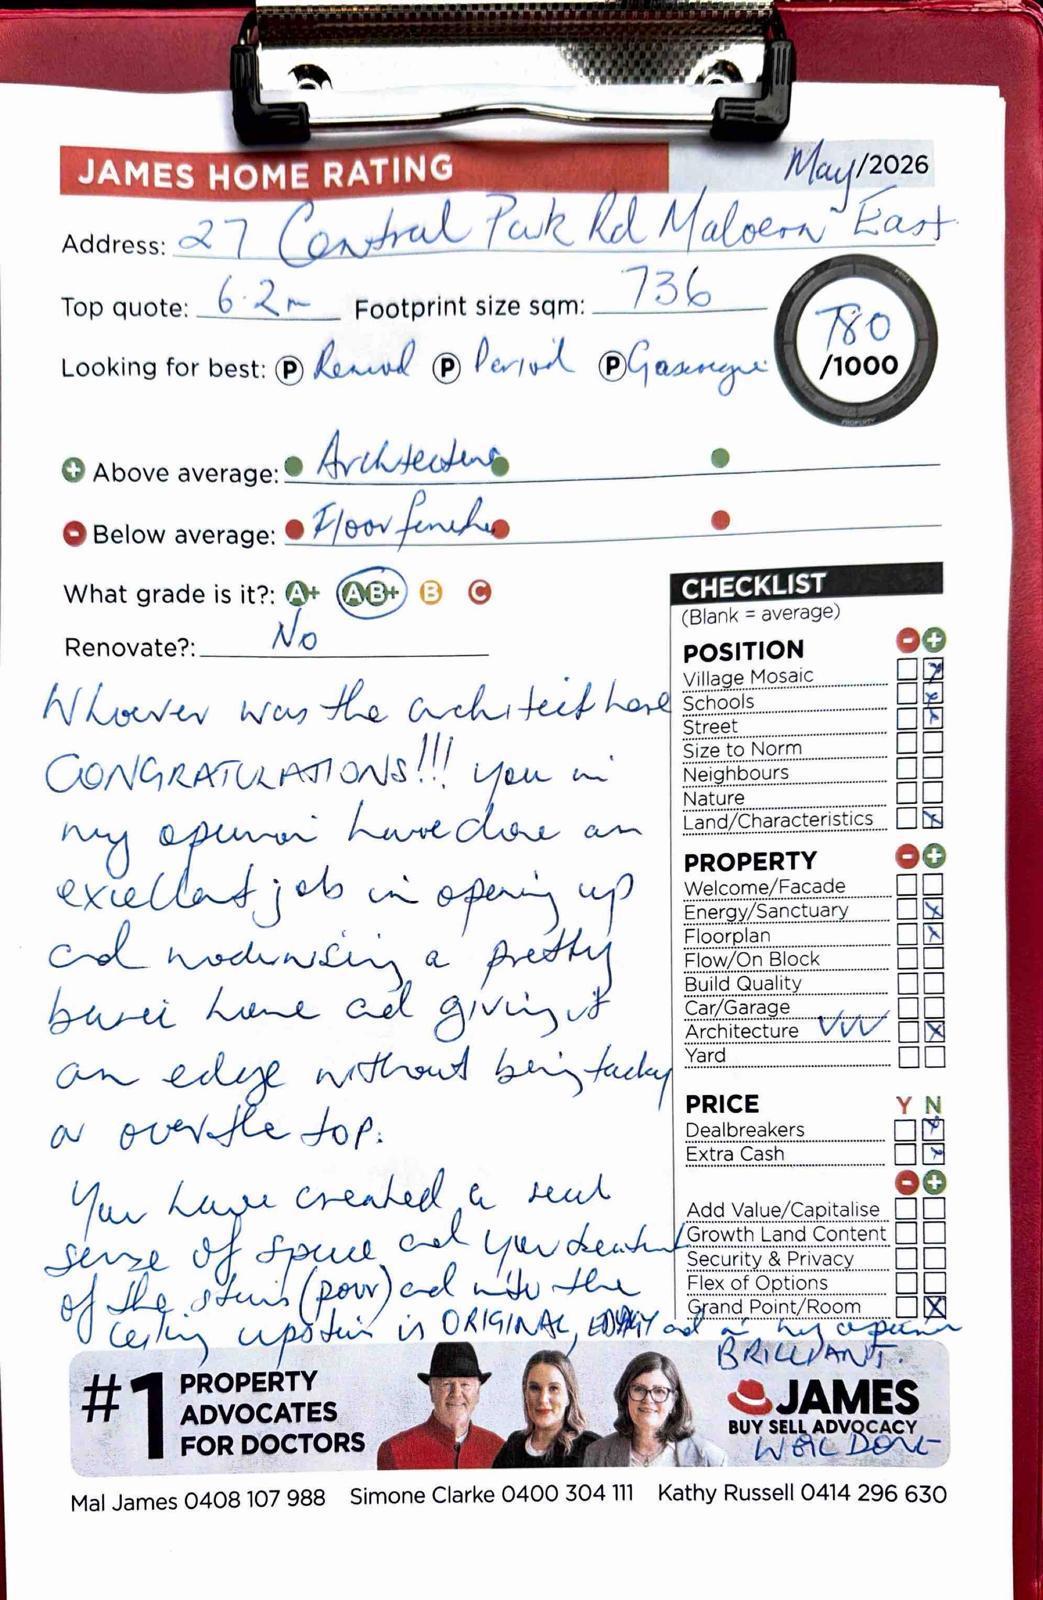 JAMES HOME RATING
May/2026
Address: 27 Central Park Rd Malvern East
Top quote: 6.2m Footprint size sqm: 736
780
/1000
PROPERTY
Looking for best: P P Period P
+ Above average: Architecture
- Below average: Floor finishes
What grade is it?: A+ AB+ B C
Renovate?: No
Whoever was the architect here
CONGRATULATIONS!!! you in
my opinion have done an
excellent job in opening up
and modernising a pretty
basic home and giving it
an edge without being tacky
or over the top.
You have created a real
sense of space and your treatment
of the stairs (pour) and into the
ceiling upstairs is ORIGINAL, EDGY and in my opinion
BRILLIANT.
WELL DONE
CHECKLIST
(Blank = average)
POSITION - +
Village Mosaic x
Schools x
Street x
Size to Norm
Neighbours
Nature
Land/Characteristics x
PROPERTY - +
Welcome/Facade
Energy/Sanctuary x
Floorplan x
Flow/On Block
Build Quality
Car/Garage
Architecture VVV x
Yard
PRICE Y N
Dealbreakers x
Extra Cash x
- +
Add Value/Capitalise
Growth Land Content
Security & Privacy
Flex of Options
Grand Point/Room x
#1 PROPERTY
ADVOCATES
FOR DOCTORS
JAMES
BUY SELL ADVOCACY
Mal James 0408 107 988 Simone Clarke 0400 304 111 Kathy Russell 0414 296 630